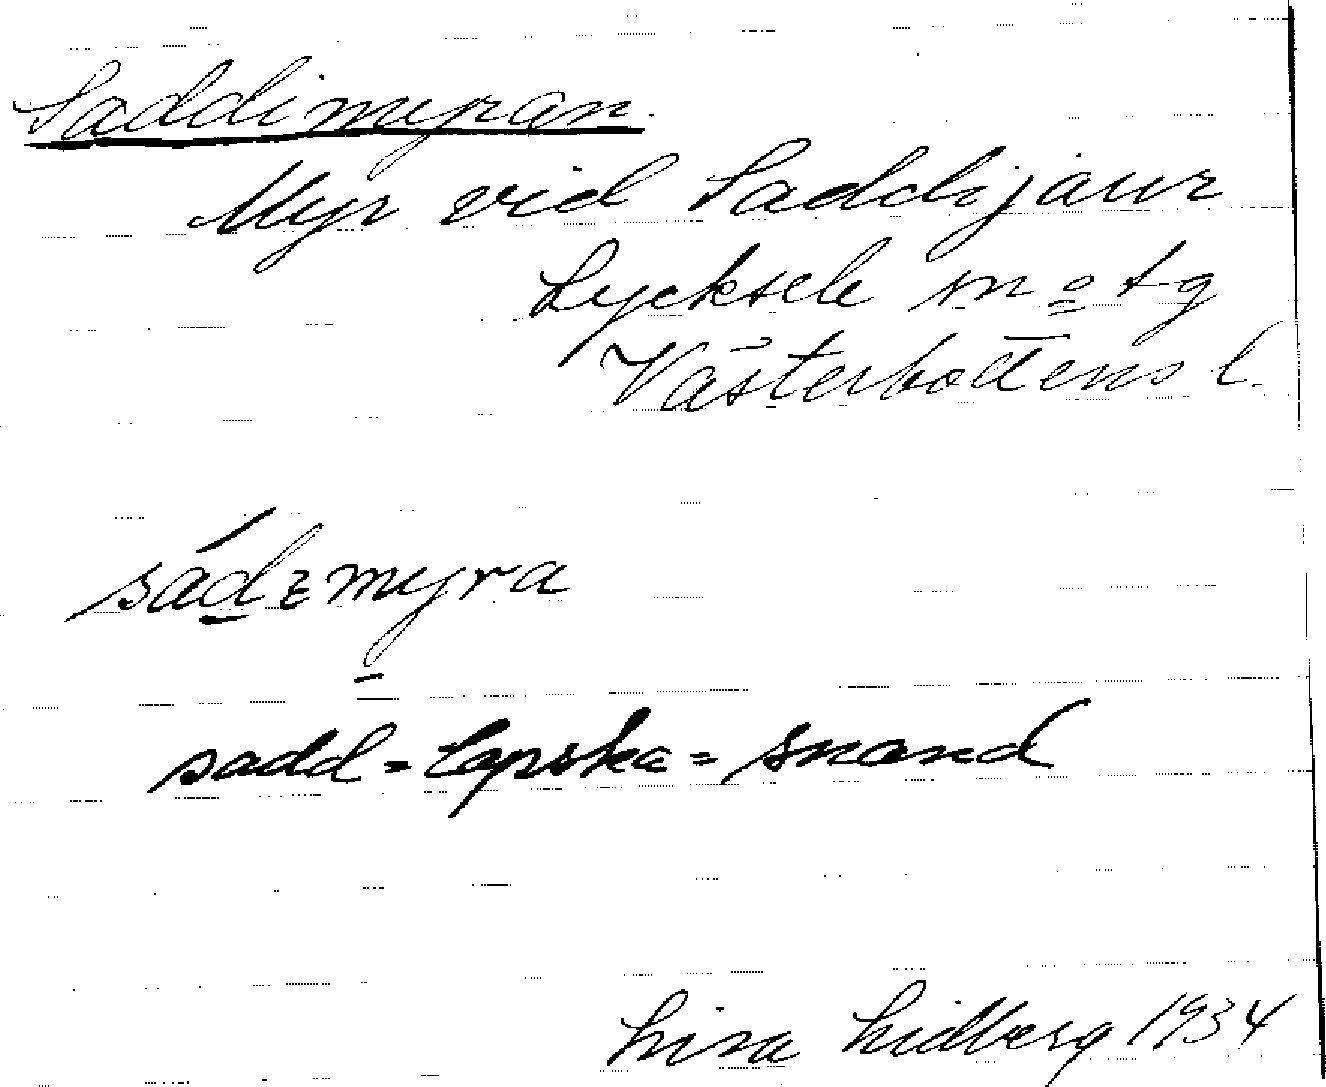 Saddimyran.
Myr vid Saddijaur
Lycksele sn o tg
Västerbottens l.
sádɛmyra
sadd = lapska = snand
Lisa Lidberg 1934